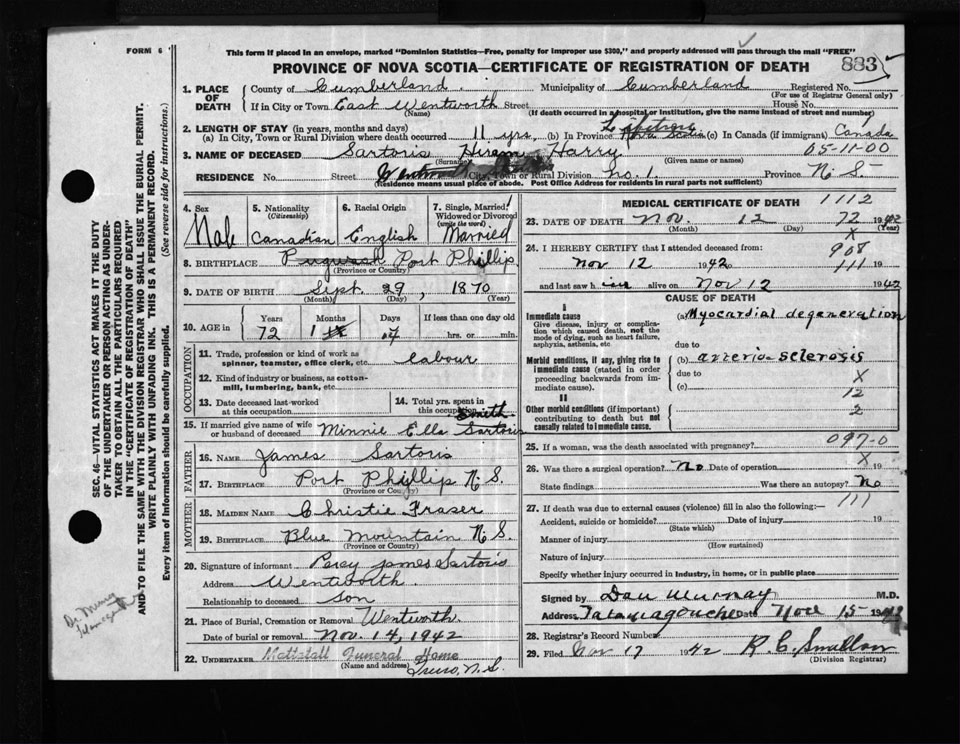 FORM 6
This form if placed in an envelope, marked "Dominion Statistics—Free, penalty for improper use $300," and properly addressed will pass through the mail "FREE"
PROVINCE OF NOVA SCOTIA—CERTIFICATE OF REGISTRATION OF DEATH
883
1. PLACE OF DEATH
County of Cumberland Municipality of Cumberland Registered No.
(For use of Registrar General only)
If in City or Town East Wentworth Street House No.
(Name) (If death occurred in a hospital or institution, give the name instead of street and number)
2. LENGTH OF STAY (in years, months and days)
(a) In City, Town or Rural Division where death occurred 11 yrs, (b) In Province Lifetime (c) In Canada (if immigrant) Canada
3. NAME OF DECEASED Sartoris Hiram Harry 05-11-00
(Surname) (Given name or names)
RESIDENCE No. Street Wentworth City, Town or Rural Division No. 1. Province N. S.
(Residence means usual place of abode. Post Office Address for residents in rural parts not sufficient)
4. Sex
Male
5. Nationality
(Citizenship)
Canadian
6. Racial Origin
English
7. Single, Married, Widowed or Divorced
(write the word)
Married
8. BIRTHPLACE Pugwash Port Phillip
(Province or Country)
9. DATE OF BIRTH Sept. 29, 1870
(Month) (Day) (Year)
10. AGE in
Years Months Days If less than one day old
72 1 hrs. or min.
OCCUPATION
11. Trade, profession or kind of work as spinner, teamster, office clerk, etc. labour
12. Kind of industry or business, as cotton-mill, lumbering, bank, etc.
13. Date deceased last worked at this occupation
14. Total yrs. spent in this occupation
15. If married give name of wife or husband of deceased Minnie Ella Smith Sartoris
FATHER
16. NAME James Sartoris
17. BIRTHPLACE Port Phillip N. S.
(Province or Country)
MOTHER
18. MAIDEN NAME Christie Fraser
19. BIRTHPLACE Blue Mountain N. S.
(Province or Country)
20. Signature of informant Percy James Sartoris
Address Wentworth.
Relationship to deceased Son
21. Place of Burial, Cremation or Removal Wentworth
Date of burial or removal Nov. 14, 1942
22. UNDERTAKER Mattatall Funeral Home
(Name and address) Truro, N. S.
MEDICAL CERTIFICATE OF DEATH 1112
23. DATE OF DEATH Nov. 12 1942
(Month) (Day) (Year)
72
X
24. I HEREBY CERTIFY that I attended deceased from: 908
Nov 12 1942 111 19
and last saw him alive on Nov 12 1942
CAUSE OF DEATH
I
Immediate cause
Give disease, injury or complication which caused death, not the mode of dying, such as heart failure, asphyxia, asthenia, etc.
(a) Myocardial degeneration
due to
Morbid conditions, if any, giving rise to immediate cause (stated in order proceeding backwards from immediate cause).
(b) arterio-sclerosis
due to X
(c)
12
II
Other morbid conditions (if important) contributing to death but not causally related to immediate cause.
2
25. If a woman, was the death associated with pregnancy? 097-0
X
26. Was there a surgical operation? No Date of operation 19
State findings Was there an autopsy? No
111
27. If death was due to external causes (violence) fill in also the following:—
Accident, suicide or homicide? Date of injury 19
(State which)
Manner of injury
(How sustained)
Nature of injury
Specify whether injury occurred in industry, in home, or in public place
Signed by Dan Murray M.D.
Address Tatamagouche Date Nov 15 1942
28. Registrar's Record Number
29. Filed Nov 17 1942 R. C. Smallon
(Division Registrar)
SEC. 46—VITAL STATISTICS ACT MAKES IT THE DUTY
OF THE UNDERTAKER OR PERSON ACTING AS UNDERTAKER TO OBTAIN ALL THE PARTICULARS REQUIRED
IN THE "CERTIFICATE OF REGISTRATION OF DEATH"
AND TO FILE THE SAME WITH THE DIVISION REGISTRAR WHO SHALL ISSUE THE BURIAL PERMIT.
WRITE PLAINLY WITH UNFADING INK. THIS IS A PERMANENT RECORD.
Every item of Information should be carefully supplied. (See reverse side for instructions.)
Dr. Murray